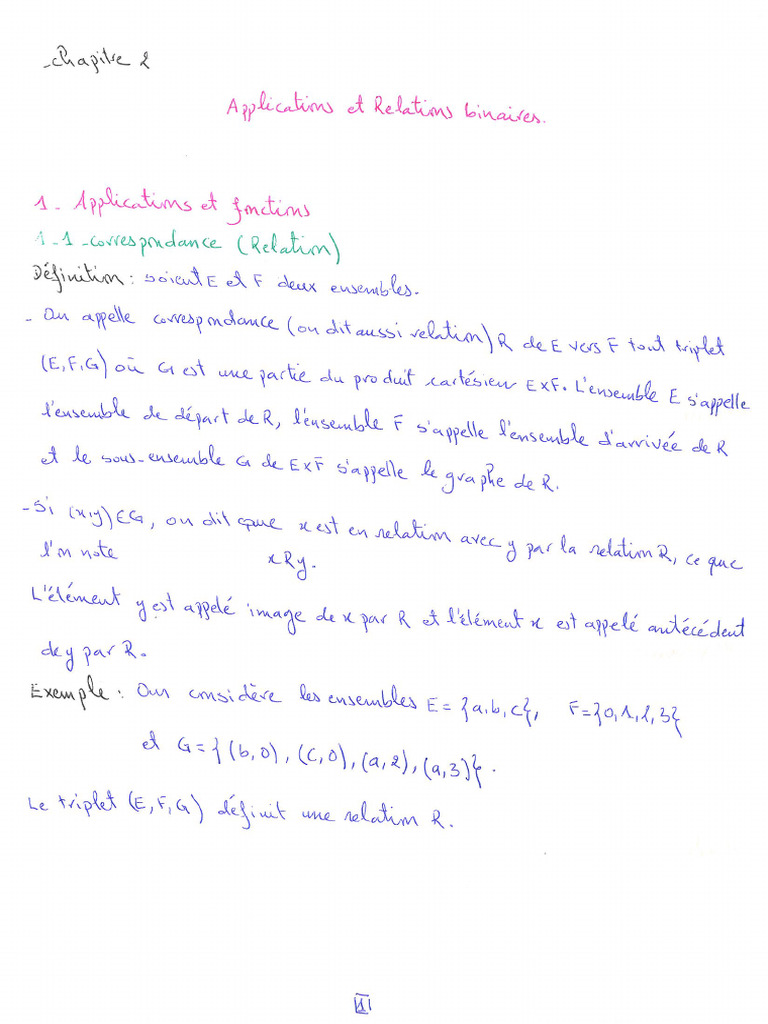 - Chapitre 2
Applications et Relations binaires.
1 - Applications et fonctions
1-1-correspondance (Relation)
Définition : soient E et F deux ensembles.
- On appelle correspondance (on dit aussi relation) R de E vers F tout triplet
(E,F,G) où G est une partie du produit cartésien ExF. L'ensemble E s'appelle
l'ensemble de départ de R, l'ensemble F s'appelle l'ensemble d'arrivée de R
et le sous-ensemble G de ExF s'appelle le graphe de R.
- Si (x,y)∈G, on dit que x est en relation avec y par la relation R, ce que
l'on note xRy.
L'élément y est appelé image de x par R et l'élément x est appelé antécédent
de y par R.
Exemple : On considère les ensembles E = {a,b,c}, F={0,1,2,3}
et G = {(b,0), (c,0), (a,2), (a,3)}.
Le triplet (E,F,G) définit une relation R.
1